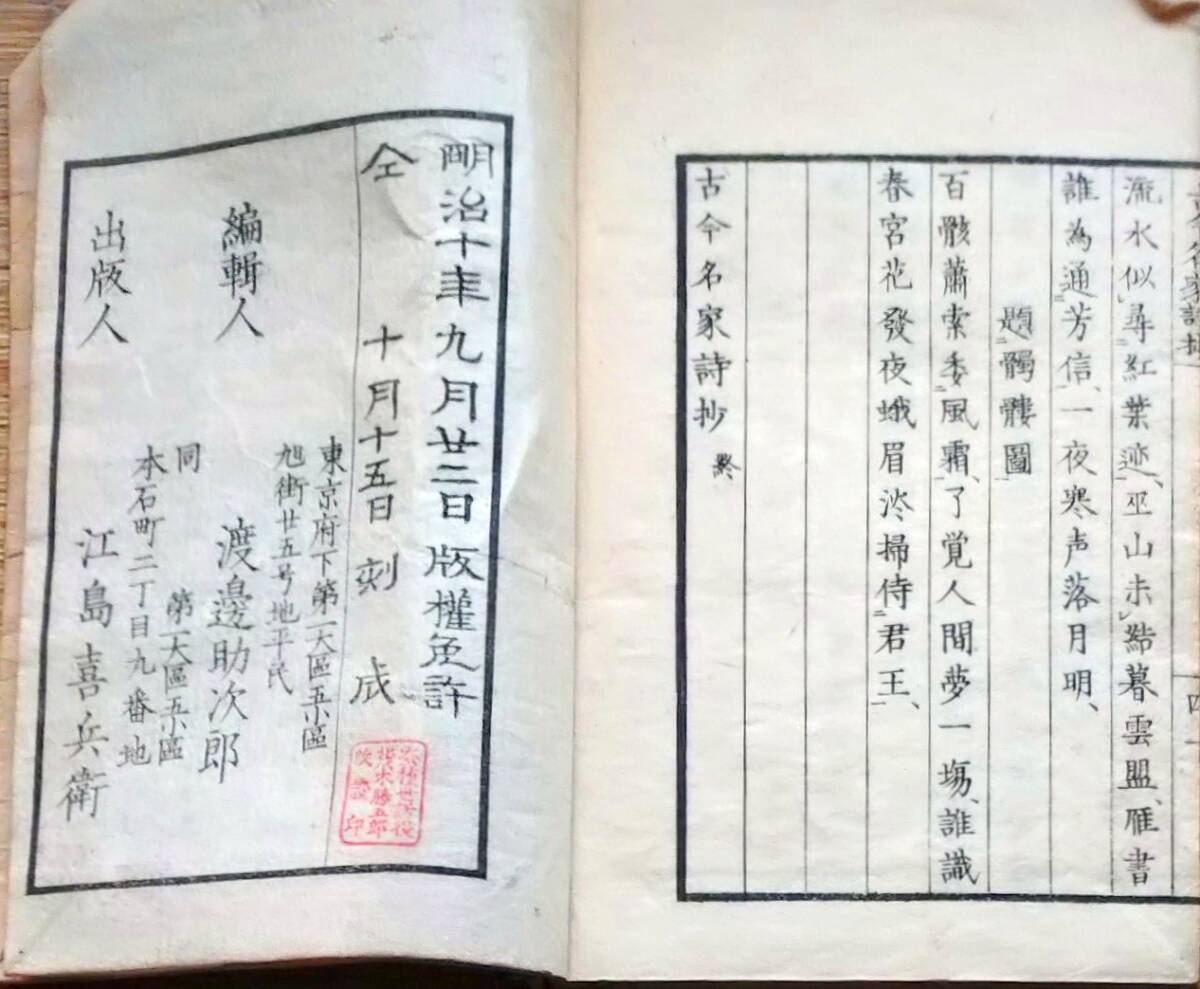 流水似尋紅葉迹、巫山未結暮雲盟、雁書
誰為通芳信、一夜寒声落月明、
題髑髏圖
百骸蕭索委風霜、了覚人間夢一場、誰識
春宮花發夜蛾眉淡掃侍君王、
古今名家詩抄 終
明治十年九月廿二日版權免許
仝 十月十五日刻成
東京府下第一大區五小區
旭街廿五号地平民
編輯人 渡邊助次郎
同 第一大區五小區
本石町二丁目九番地
出版人 江島喜兵衛